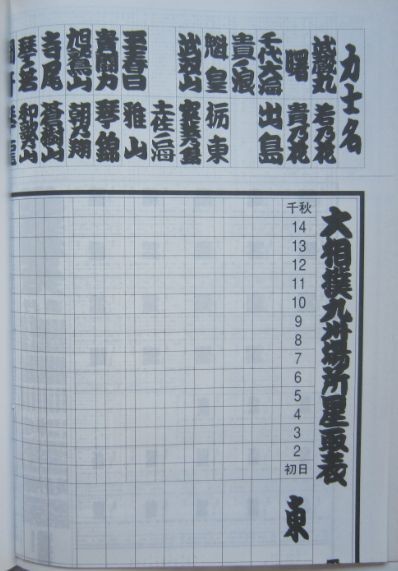 力士名
武蔵丸 若乃花
曙 貴乃花
千代大海 出島
貴ノ浪
魁皇 栃東
武双山
土佐ノ海
玉春日 雅山
貴闘力 琴錦
旭鷲山 朝乃翔
寺尾 蒼樹山
琴ノ若 和歌乃山
大相撲九州場所星取表
千秋
14
13
12
11
10
9
8
7
6
5
4
3
2
初日
東